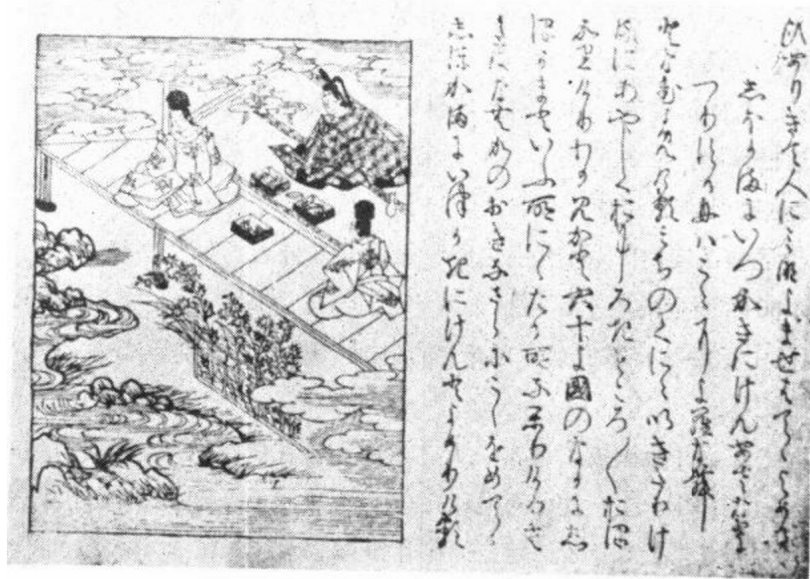 ひありきて人にみなよませはてゝよめる
しほかまにいつかきにけんあさなきに
つりする舟ハこゝによらなん
となむよみけるはみちのくにゝいきたりけ
るにあやしくおもしろきところ／＼おほ
かりけりわかみかと六十よ國のなかにし
ほかまといふ所にゝたる所なかりけりさ
れはなむかのおきなさらにこゝをめてゝ
しほかまにいつかきにけんとよめりける